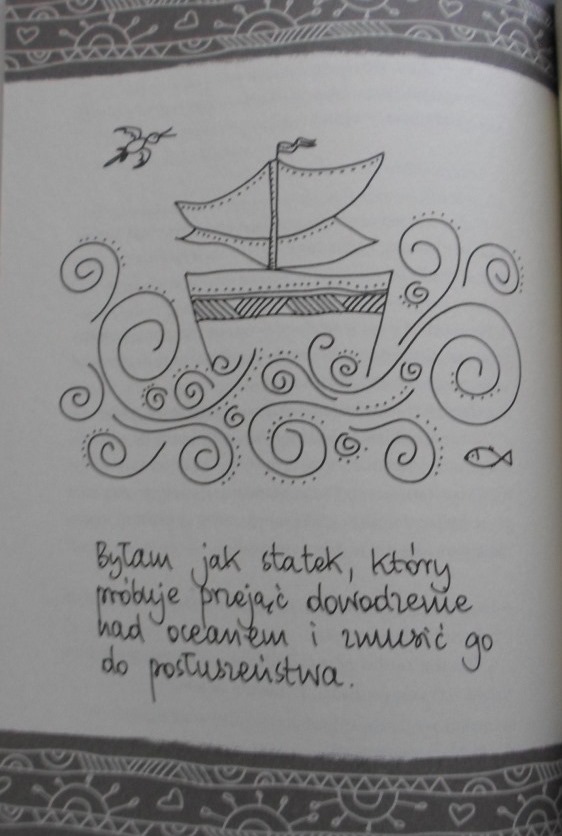 Byłam jak statek, który
próbuje przejąć dowodzenie
nad oceanem i zmusić go
do posłuszeństwa.